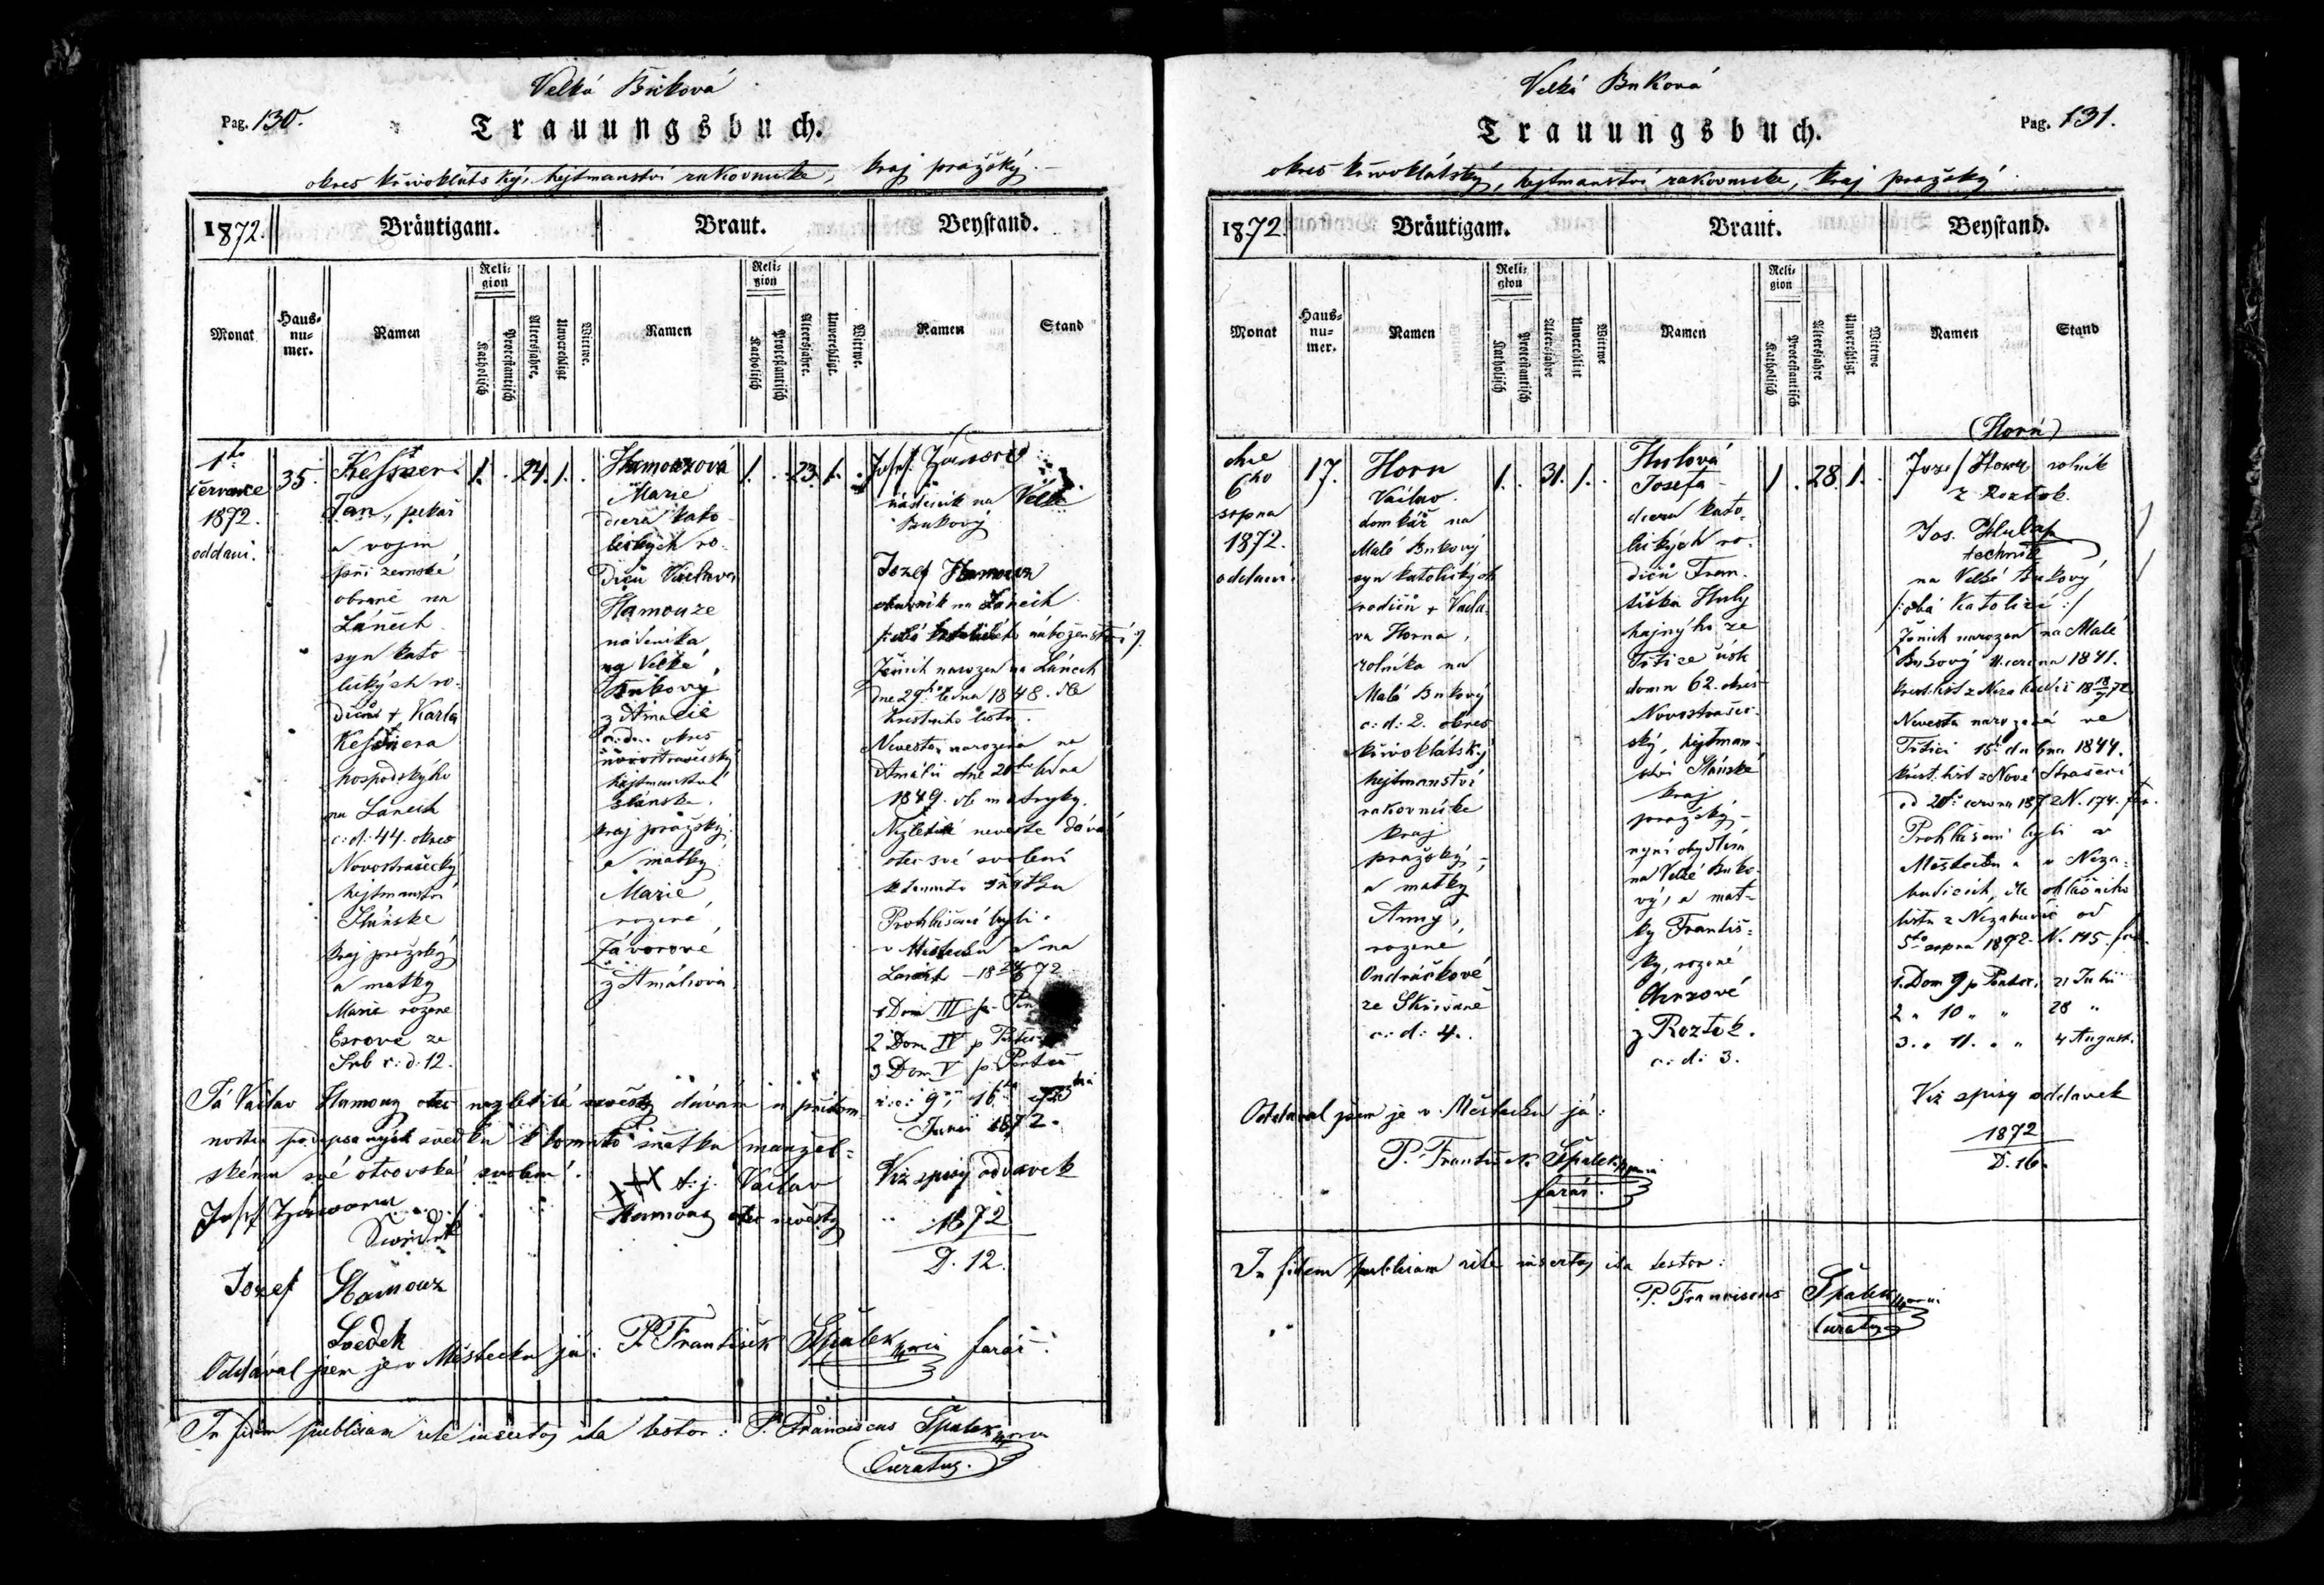 Velká Buková
Pag. 130.
Trauungsbuch.
okres křivoklátský, hejtmanství rakovnické, kraj pražský
1872.
Bräutigam.
Braut.
Beystand.
Monat
Haus-
nu-
mer.
Namen
Reli-
gion
Katholisch
Protestantisch
Altersjahre.
Unverehligt
Wittwe.
Namen
Reli-
gion
Katholisch
Protestantisch
Altersjahre.
Unverehligt.
Wittwe.
Namen
Stand
1ho
července
1872.
oddáni.
35.
Kessner
Jan, pekař
a vojín
při zemské
obraně na
Lánech
syn kato
lických ro-
dičů + Karla
Kessnera
hospodskýho
na Lánech
c: d: 44. okres
Novostrašecký
hejtmanství
Slánské
kraj pražský
a matky
Marie rozené
ze
Srb c: d: 12.
1. 24. 1.
Hamouzová
Marie
dcera kato
lických ro-
dičů Václava
Hamouze
nádeníka
na Velké
Bukový
z Amalie
okres
novostrašecský
hejtmanství
Slánské.
kraj pražský
a matky
Marie
rozené
Javorové
z Amáliova
1. 23. 1.
Josef
nádeník na Velké
Bukový
Jozef Hamouz
na Lánech
náboženství
Ženich narozen na Lánech
dne 29ho 1848. dle
křestního listu.
Nevěsta narozena na
Amálii dne 20ho
1849. dle matryky.
Nezletilé nevěstě dává
otec své svolení
k tomuto sňatku
Prohlášení byli
v Městečku a na
Lánech
1 Dom III p.
2 Dom IV p
3 Dom V p.
9, 16
Junii 1872.
Viz spisy oddavek
1872
D. 12.
Já Václav Hamouz otec nezletilé nevěsty dávám u přítom
nosti podepsaných svědků k tomuto sňatku manžel-
skému své otcovské svolení.
+++ t. j. Václav
Hamouz otec nevěsty
Josef
Jozef Hamouz
Svedek
Oddával jsem je v Městečku já: P. František Špalek farář.
In fidem publicam rite insertos ita testor: P. Franciscus Špalek
Curatus.
Velká Buková
Pag. 131.
Trauungsbuch.
okres křivoklátský, hejtmanství rakovnické, kraj pražský
1872
Bräutigam.
Braut.
Beystand.
Monat
Haus-
nu-
mer.
Namen
Reli-
gion
Katholisch
Protestantisch
Altersjahre
Unverehligt
Wittwe
Namen
Reli-
gion
Katholisch
Protestantisch
Altersjahre
Unverehligt
Wittwe
Namen
Stand
dne
6ho
srpna
1872.
oddáni.
17.
Horn
Václav
domkář na
Malé Bukový
syn katolických
rodičů + Václa-
va Horna,
rolníka na
Malé Bukový
c: d: 2. okres
křivoklátský
hejtmanství
rakovnické
kraj
pražský,
a matky
Anny,
rozené
Ondráčkové
ze Skřivaně
c: d: 4.
1. 31. 1.
Hulová
Josefa
dcera kato-
lických ro-
dičů Fran-
tiška Huly
hajnýho ze
Třtice
domu 62. okres
Novostrašec-
ský, hejtman-
ství Slánské
kraj
pražský,
nyní obydlím
na Velké Buko-
vý, a mat-
ky Františ-
ky, rozené
z Roztok.
c: d: 3.
1. 28. 1.
(Horn)
Josef Horn rolník
z Roztok.
Jos. Hula
technik
na Velké Bukový
/: obá katolíci :/
Ženich narozen na Malé
Bukový 1841.
Nevěsta narozená ve
Třtici 15ho dubna 1844.
křest. list z Nové Strašecí
od 20ho června 1872 N. 174.
Prohlášení byli v
Městečku a v Neza-
budicích, dle ohlášního
listu z Nezabudic od
5ho srpna 1872. N. 145.
1. Dom 9 p Pentec. 21 Juli
2 „ 10 „ „ 28 „
3. „ 11. „ „ 4 August.
Viz spisy oddavek
1872
D. 16.
Oddával jsem je v Městečku já:
P. František Špalek
farář.
In fidem publicam rite insertos ita testor:
P. Franciscus Špalek
Curatus